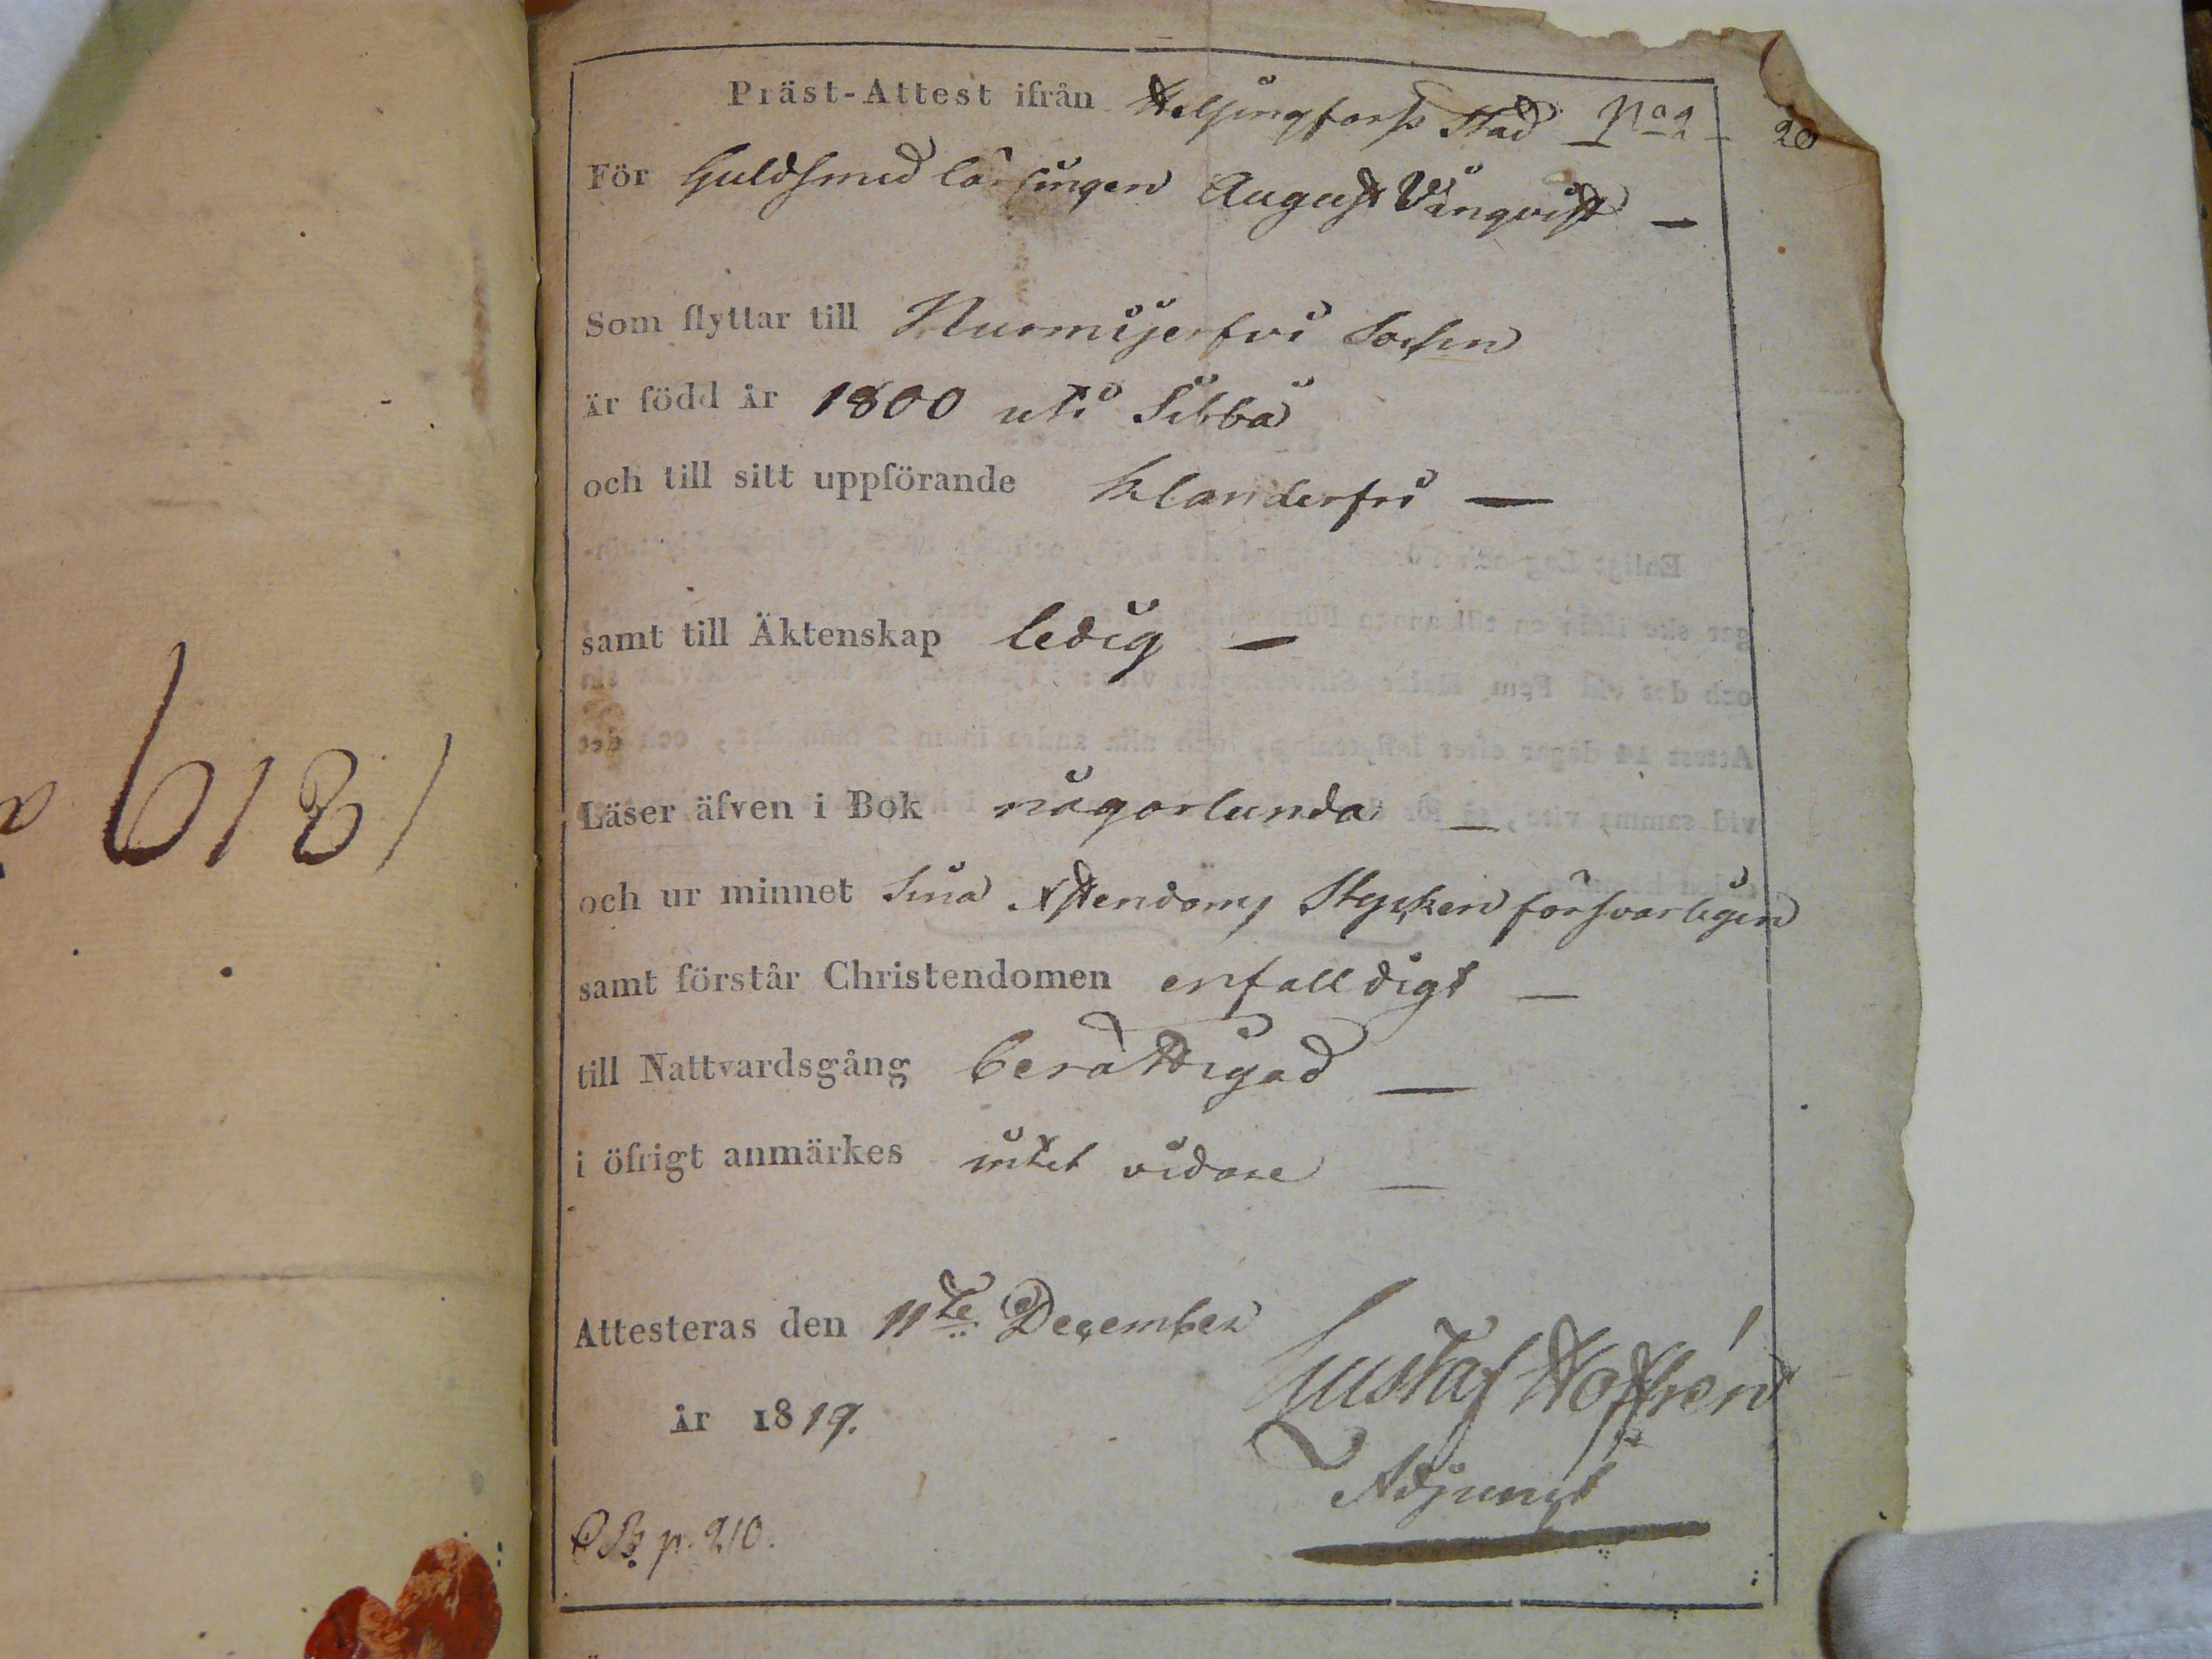 Präst-Attest ifrån Helsingfors Stad No 2
20
För Guldsmed lärlingen August Vänqvist —
Som flyttar till Nurmijerfvi Sochn
är född år 1800 uti Sibbå
och till sitt uppförande klanderfri —
samt till Äktenskap ledig —
Läser äfven i Bok någorlunda —
och ur minnet sina Xstendoms Stycken försvarligen
samt förstår Christendomen enfalldigt —
till Nattvardsgång berättigad —
i öfrigt anmärkes intet vidare —
Attesteras den 11te December
år 1819.
Gustaf
Adjunct
C B. p. 210.
1819